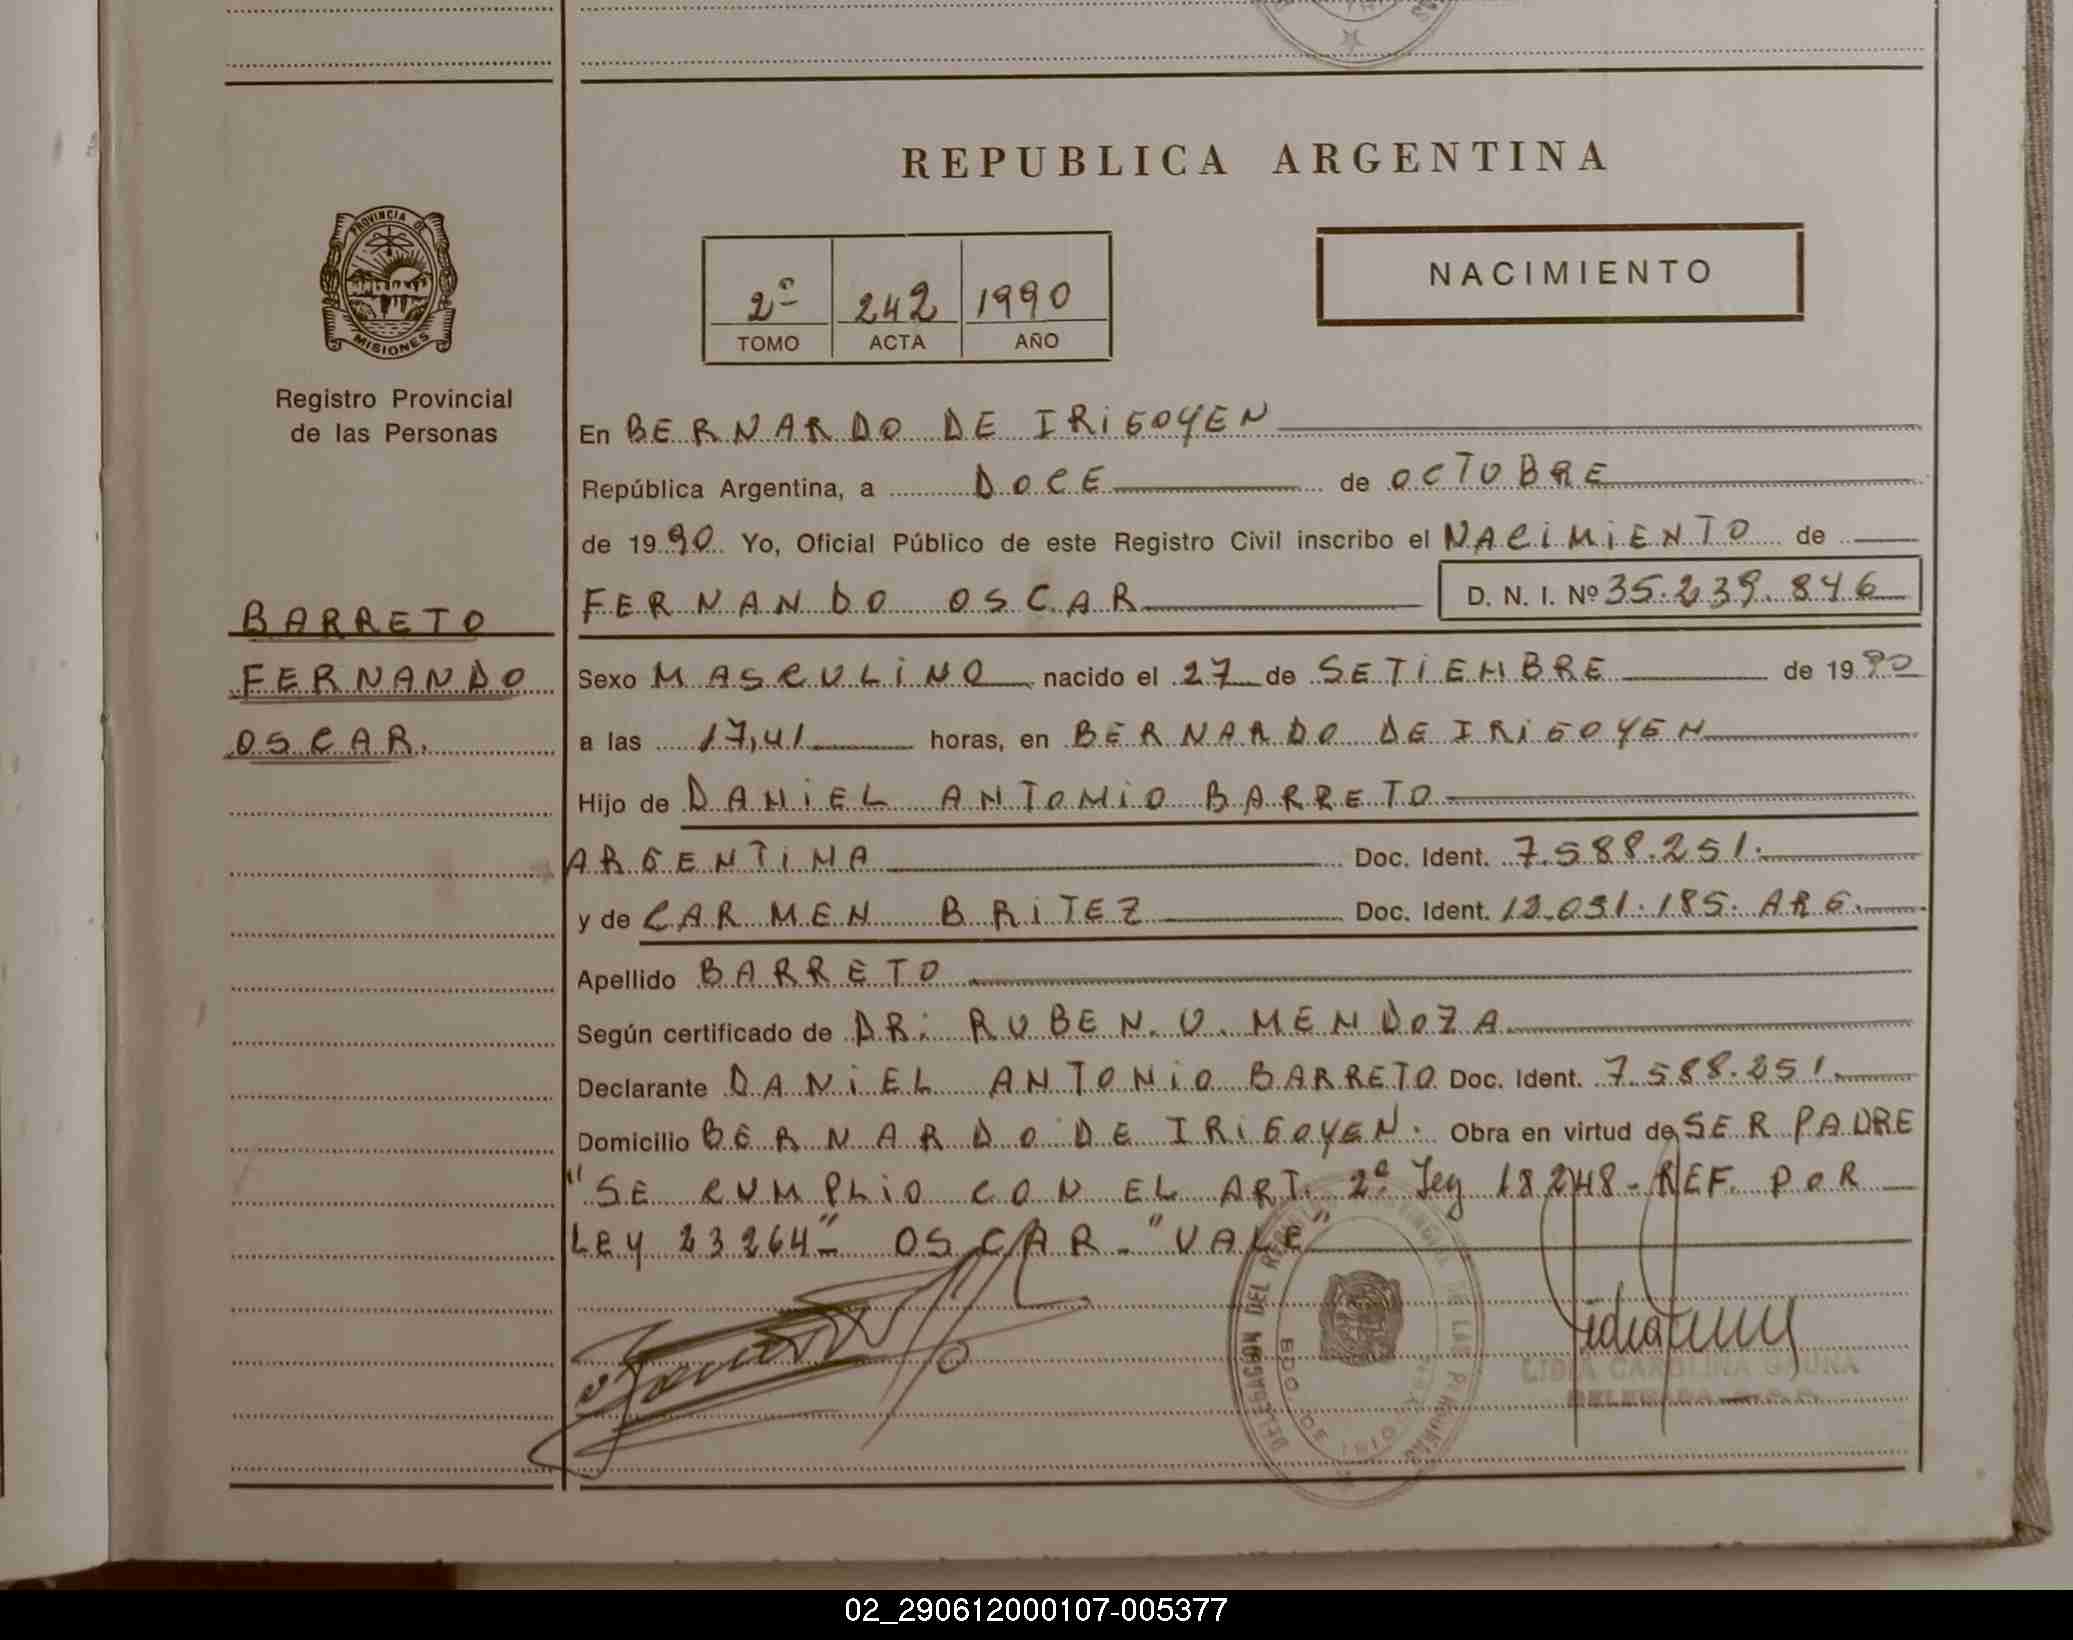 REPUBLICA ARGENTINA
PROVINCIA DE MISIONES
NACIMIENTO
2º 242 1990
TOMO ACTA AÑO
Registro Provincial
de las Personas
BARRETO
FERNANDO
OSCAR.
En BERNARDO DE IRIGOYEN
República Argentina, a DOCE de OCTUBRE
de 1990 Yo, Oficial Público de este Registro Civil inscribo el NACIMIENTO de
FERNANDO OSCAR D. N. I. Nº 35.239.846
Sexo MASCULINO nacido el 27 de SETIEMBRE de 1990
a las 17,41 horas, en BERNARDO DE IRIGOYEN
Hijo de DANIEL ANTONIO BARRETO
ARGENTINA Doc. Ident. 7.588.251.
y de CARMEN BRITEZ Doc. Ident. ARG.
Apellido BARRETO
Según certificado de DR: RUBEN. O. MENDOZA
Declarante DANIEL ANTONIO BARRETO Doc. Ident. 7.588.251.
Domicilio BERNARDO DE IRIGOYEN. Obra en virtud de SER PADRE
"SE CUMPLIO CON EL ART. 2º Ley 18248 - REF. POR
LEY 23264" OSCAR - "VALE"
LIDIA CAROLINA
DELEGADA
02_290612000107-005377